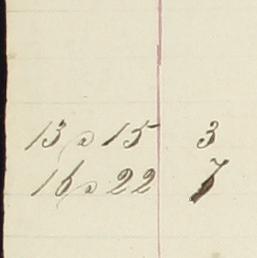 13 a 15 3
16 a 22 7